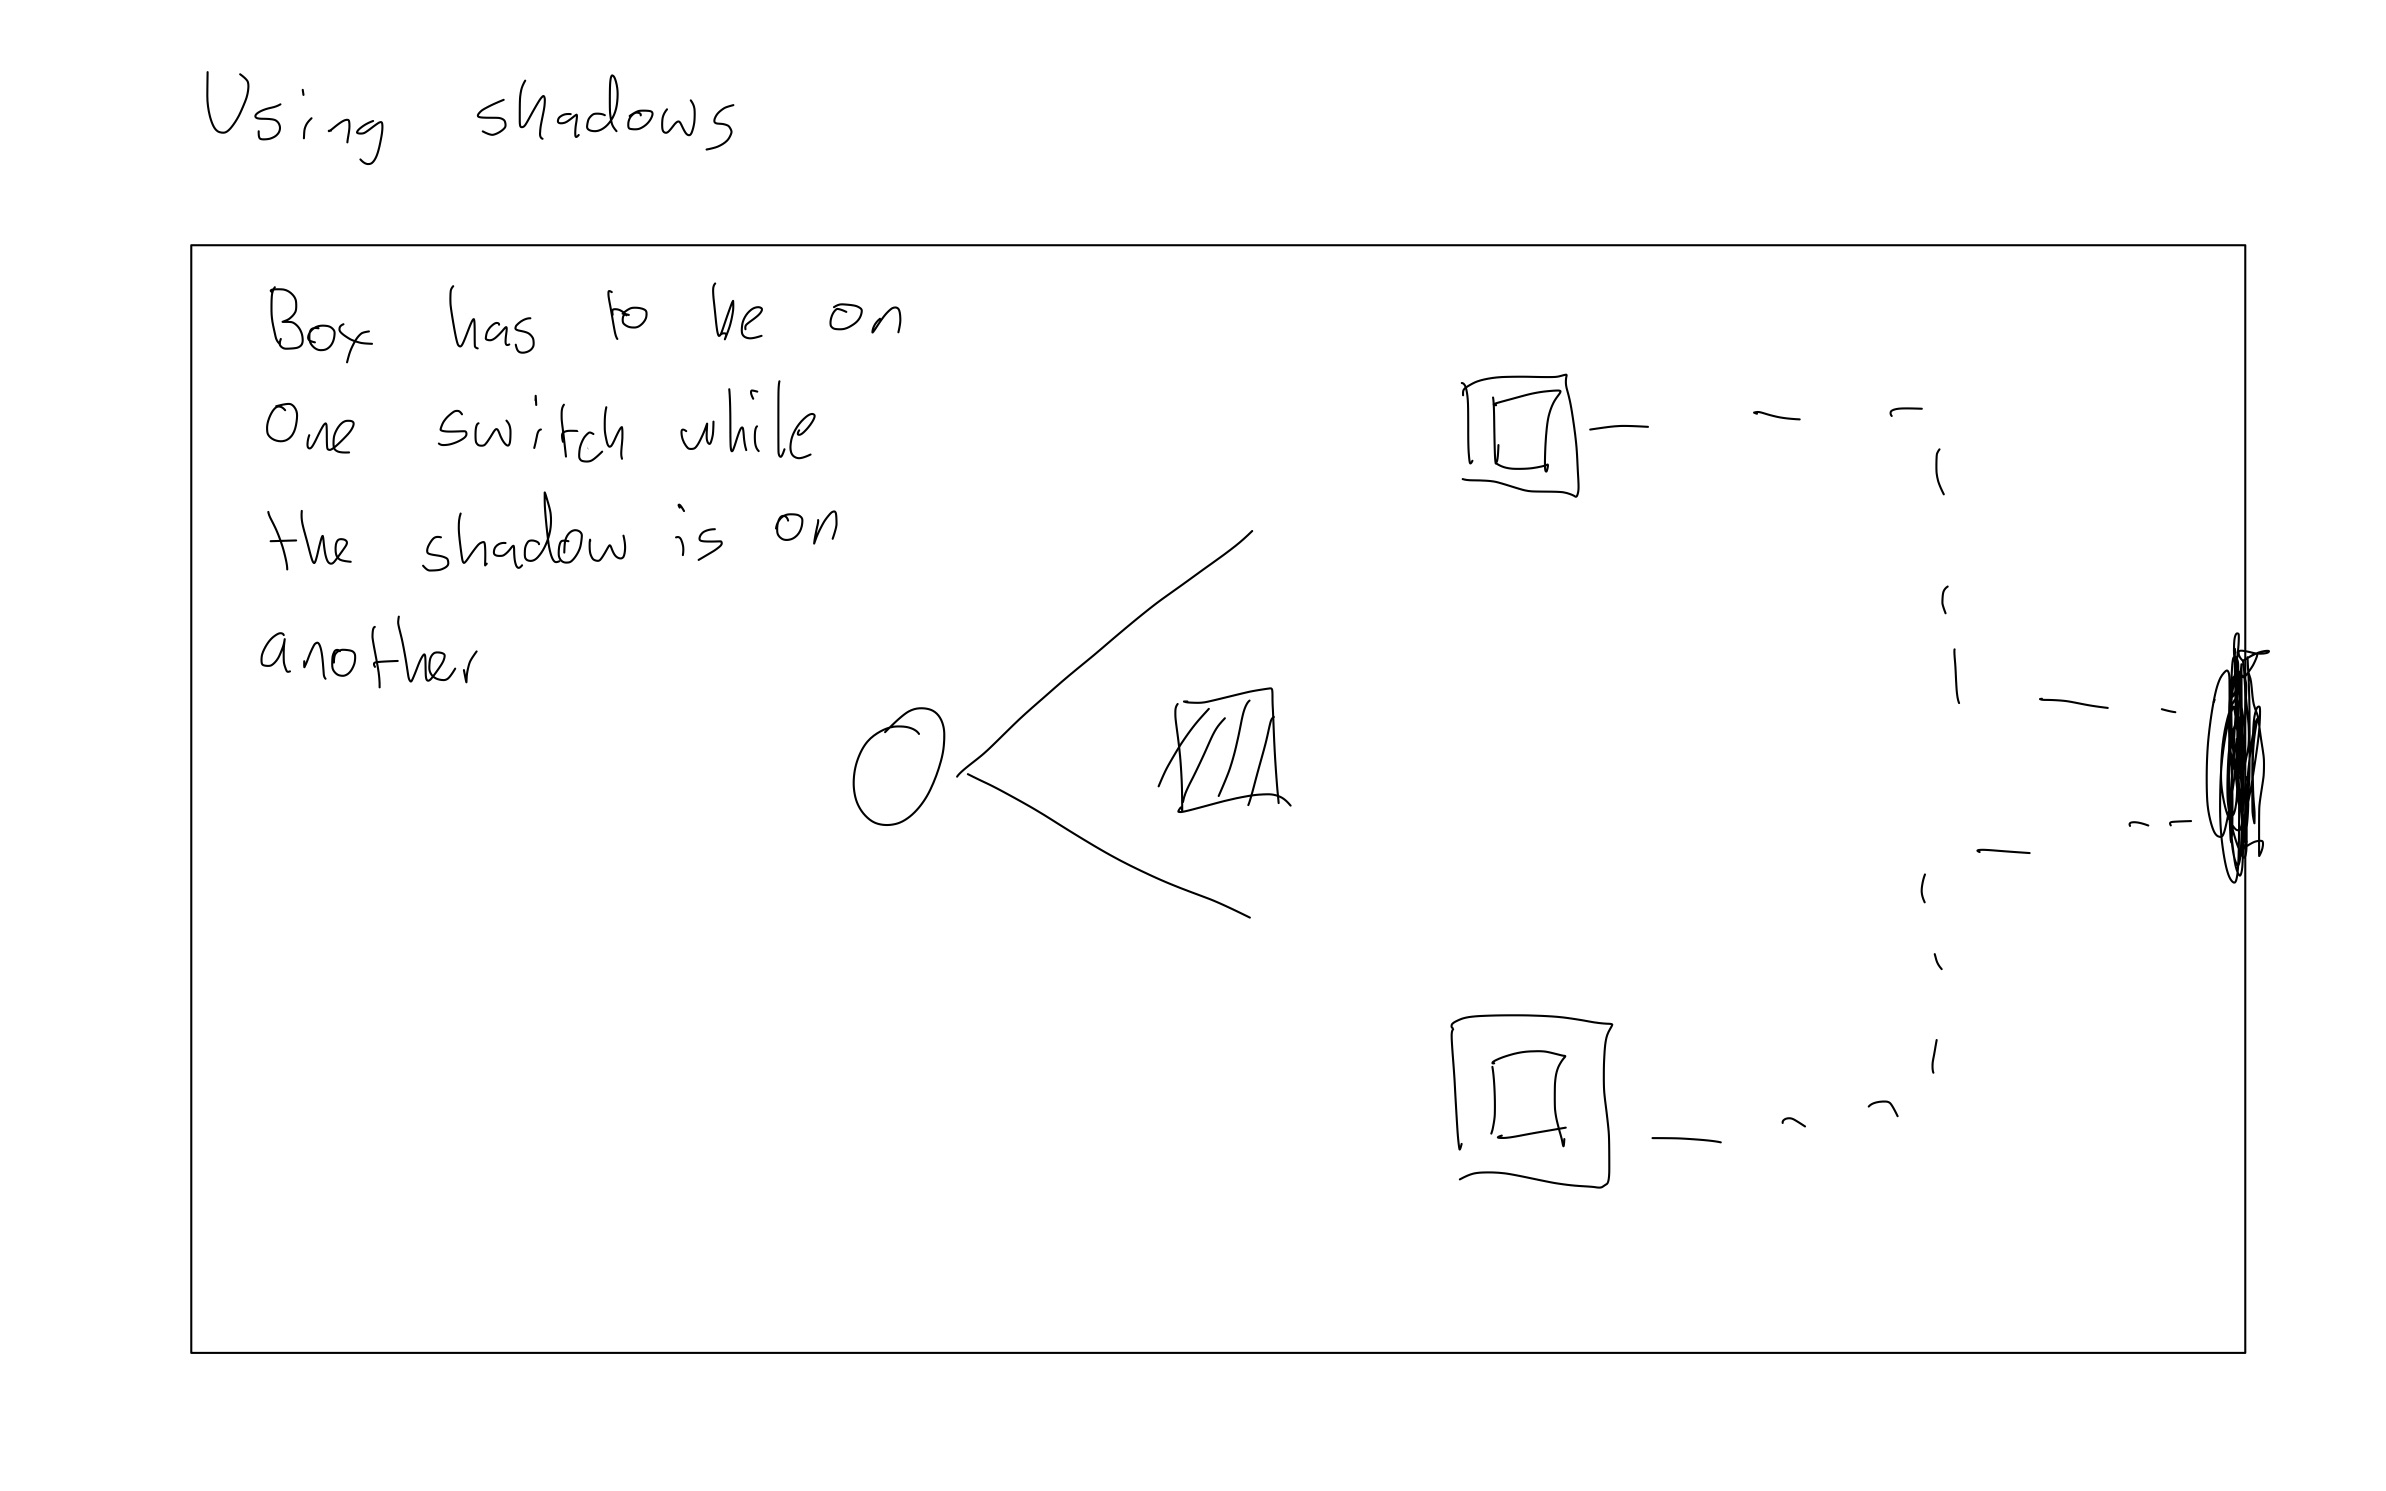 Using shadows
Box has to be on
One switch while
the shadow is on
another